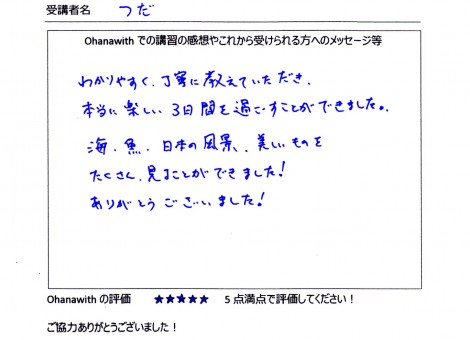 受講者名 つだ
Ohanawith での講習の感想やこれから受けられる方へのメッセージ等
わかりやすく、丁寧に教えていただき、
本当に楽しい3日間を過ごすことができました。
海、魚、日本の風景、美しいものを
たくさん、見ることができました!
ありがとうございました!
Ohanawith の評価 ★★★★★ 5 点満点で評価してください!
ご協力ありがとうございました!